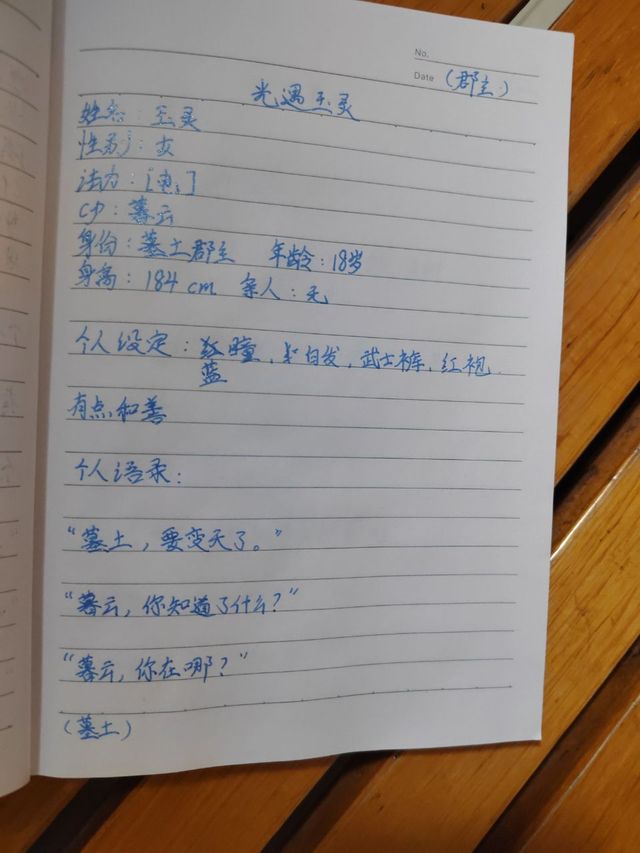 No.
Date (郡主)
光遇玉灵
姓名：玉灵
性别：女
法力：[电]
cp：暮云
身份：墓土郡主 年龄：18岁
身高：184 cm 亲人：无
个人设定：红瞳，白发，武士裤，红袍.
蓝
有点和善
个人语录：
“墓土，要变天了。”
“暮云，你知道了什么？”
“暮云，你在哪？”
(墓土)